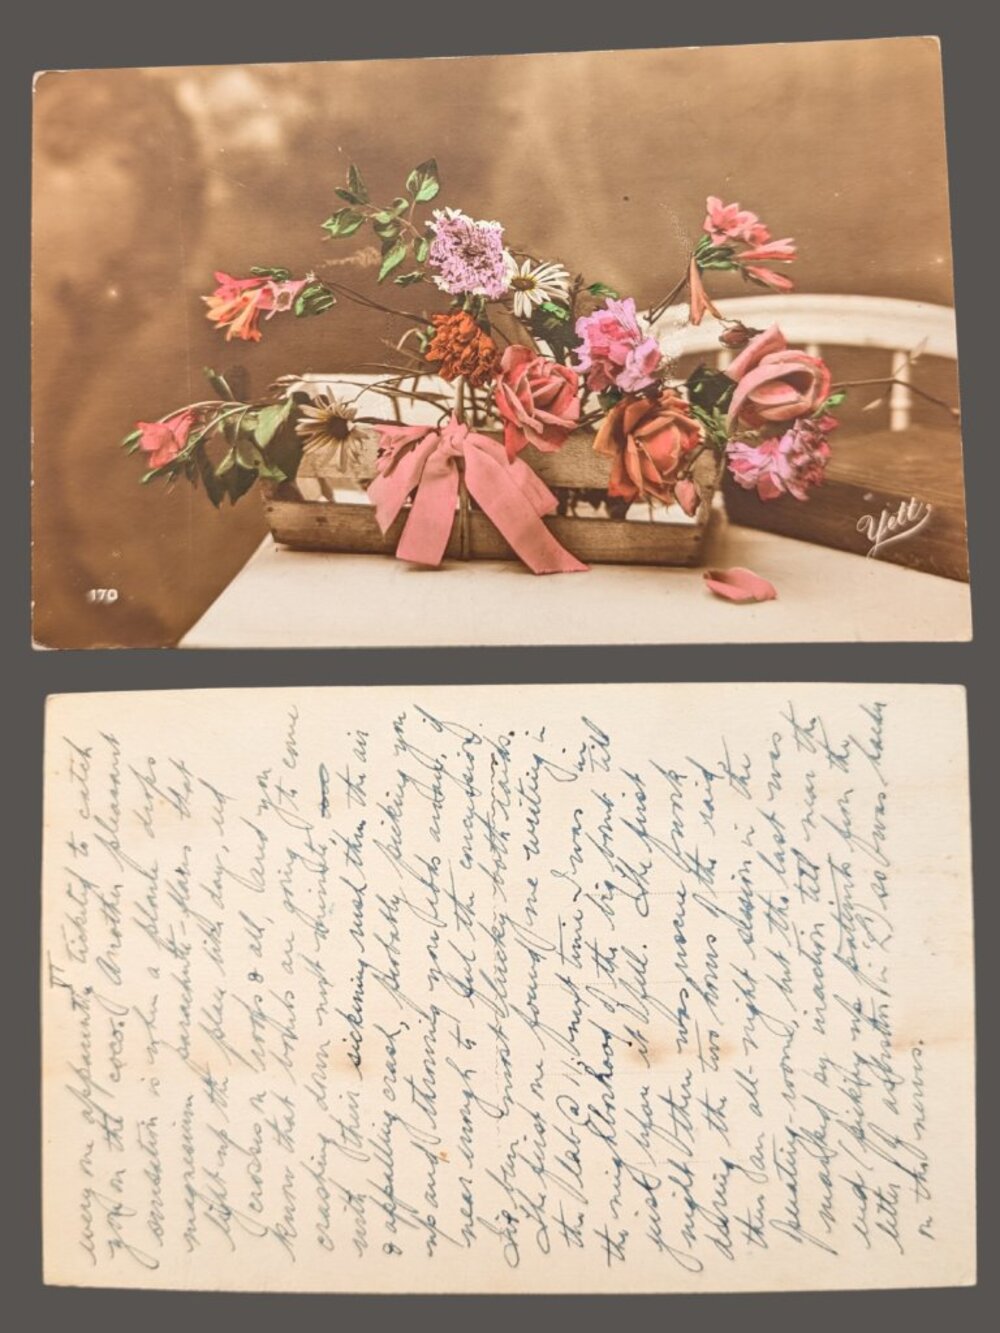 170
Yell
VI
every one apparently tickled to catch
you on the coco. Another pleasant
sensation is when a plane drops
magnesium parachute-flares that
light up the place like day, red
crosses on roofs & all, and you
know that bombs are going to come
crashing down most
with their sickening rush thru the air
& appalling crash, probably picking you
up and throwing you febs anyway, if
near enough to but the concussion.
I've been most lucky both raids.
The first one found me writing in
the lab (!!), next time I was in
the neighborhood of the big bomb till
just before it fell. The first
night there was more work
during the two hours of the raid
than an all-night session in the
operating-room, but the last was
marked by inaction till near the
end fixing up patients for the
better of absorption (?) so was hard
on the nerves.